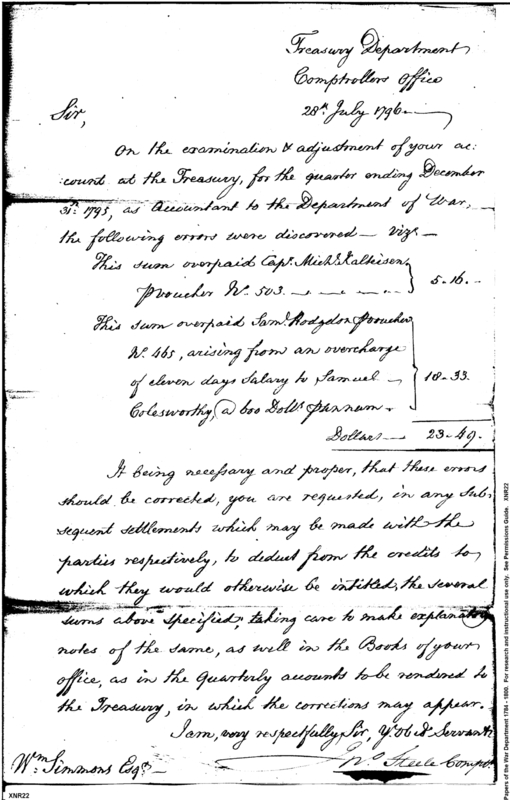 Treasury Department
Comptrollers Office
28th July 1796.
Sir,
On the examination & adjustment of your ac:
:count at the Treasury, for the quarter ending December
31st 1795, as Accountant to the Department of War,
the following errors were discovered — Vizt. —
This sum overpaid Capt. Michl. Kalteisen
P voucher No. 503. — — — — 5.16.
This sum overpaid Saml. Hodgdon P voucher
No. 465, arising from an overcharge
of eleven days Salary to Samuel
Colesworthy, @ 600 Dolls. P annum. 18.33.
Dollars — 23.49.
It being necessary and proper, that these errors
should be corrected, you are requested, in any sub-
sequent settlements which may be made with the
parties respectively, to deduct from the credits to
which they would otherwise be intitled, the several
sums above specified, taking care to make explanatory
notes of the same, as well in the Books of your
office, as in the Quarterly accounts to be rendered to
the Treasury, in which the corrections may appear.
I am, very respectfully, Sir, Yr. Ob. Dt. Servant
Jno. Steele Compr.
Wm. Simmons Esqr.
XNR22
Papers of the War Department 1784 - 1800. For research and instructional use only. See Permissions Guide. XNR22